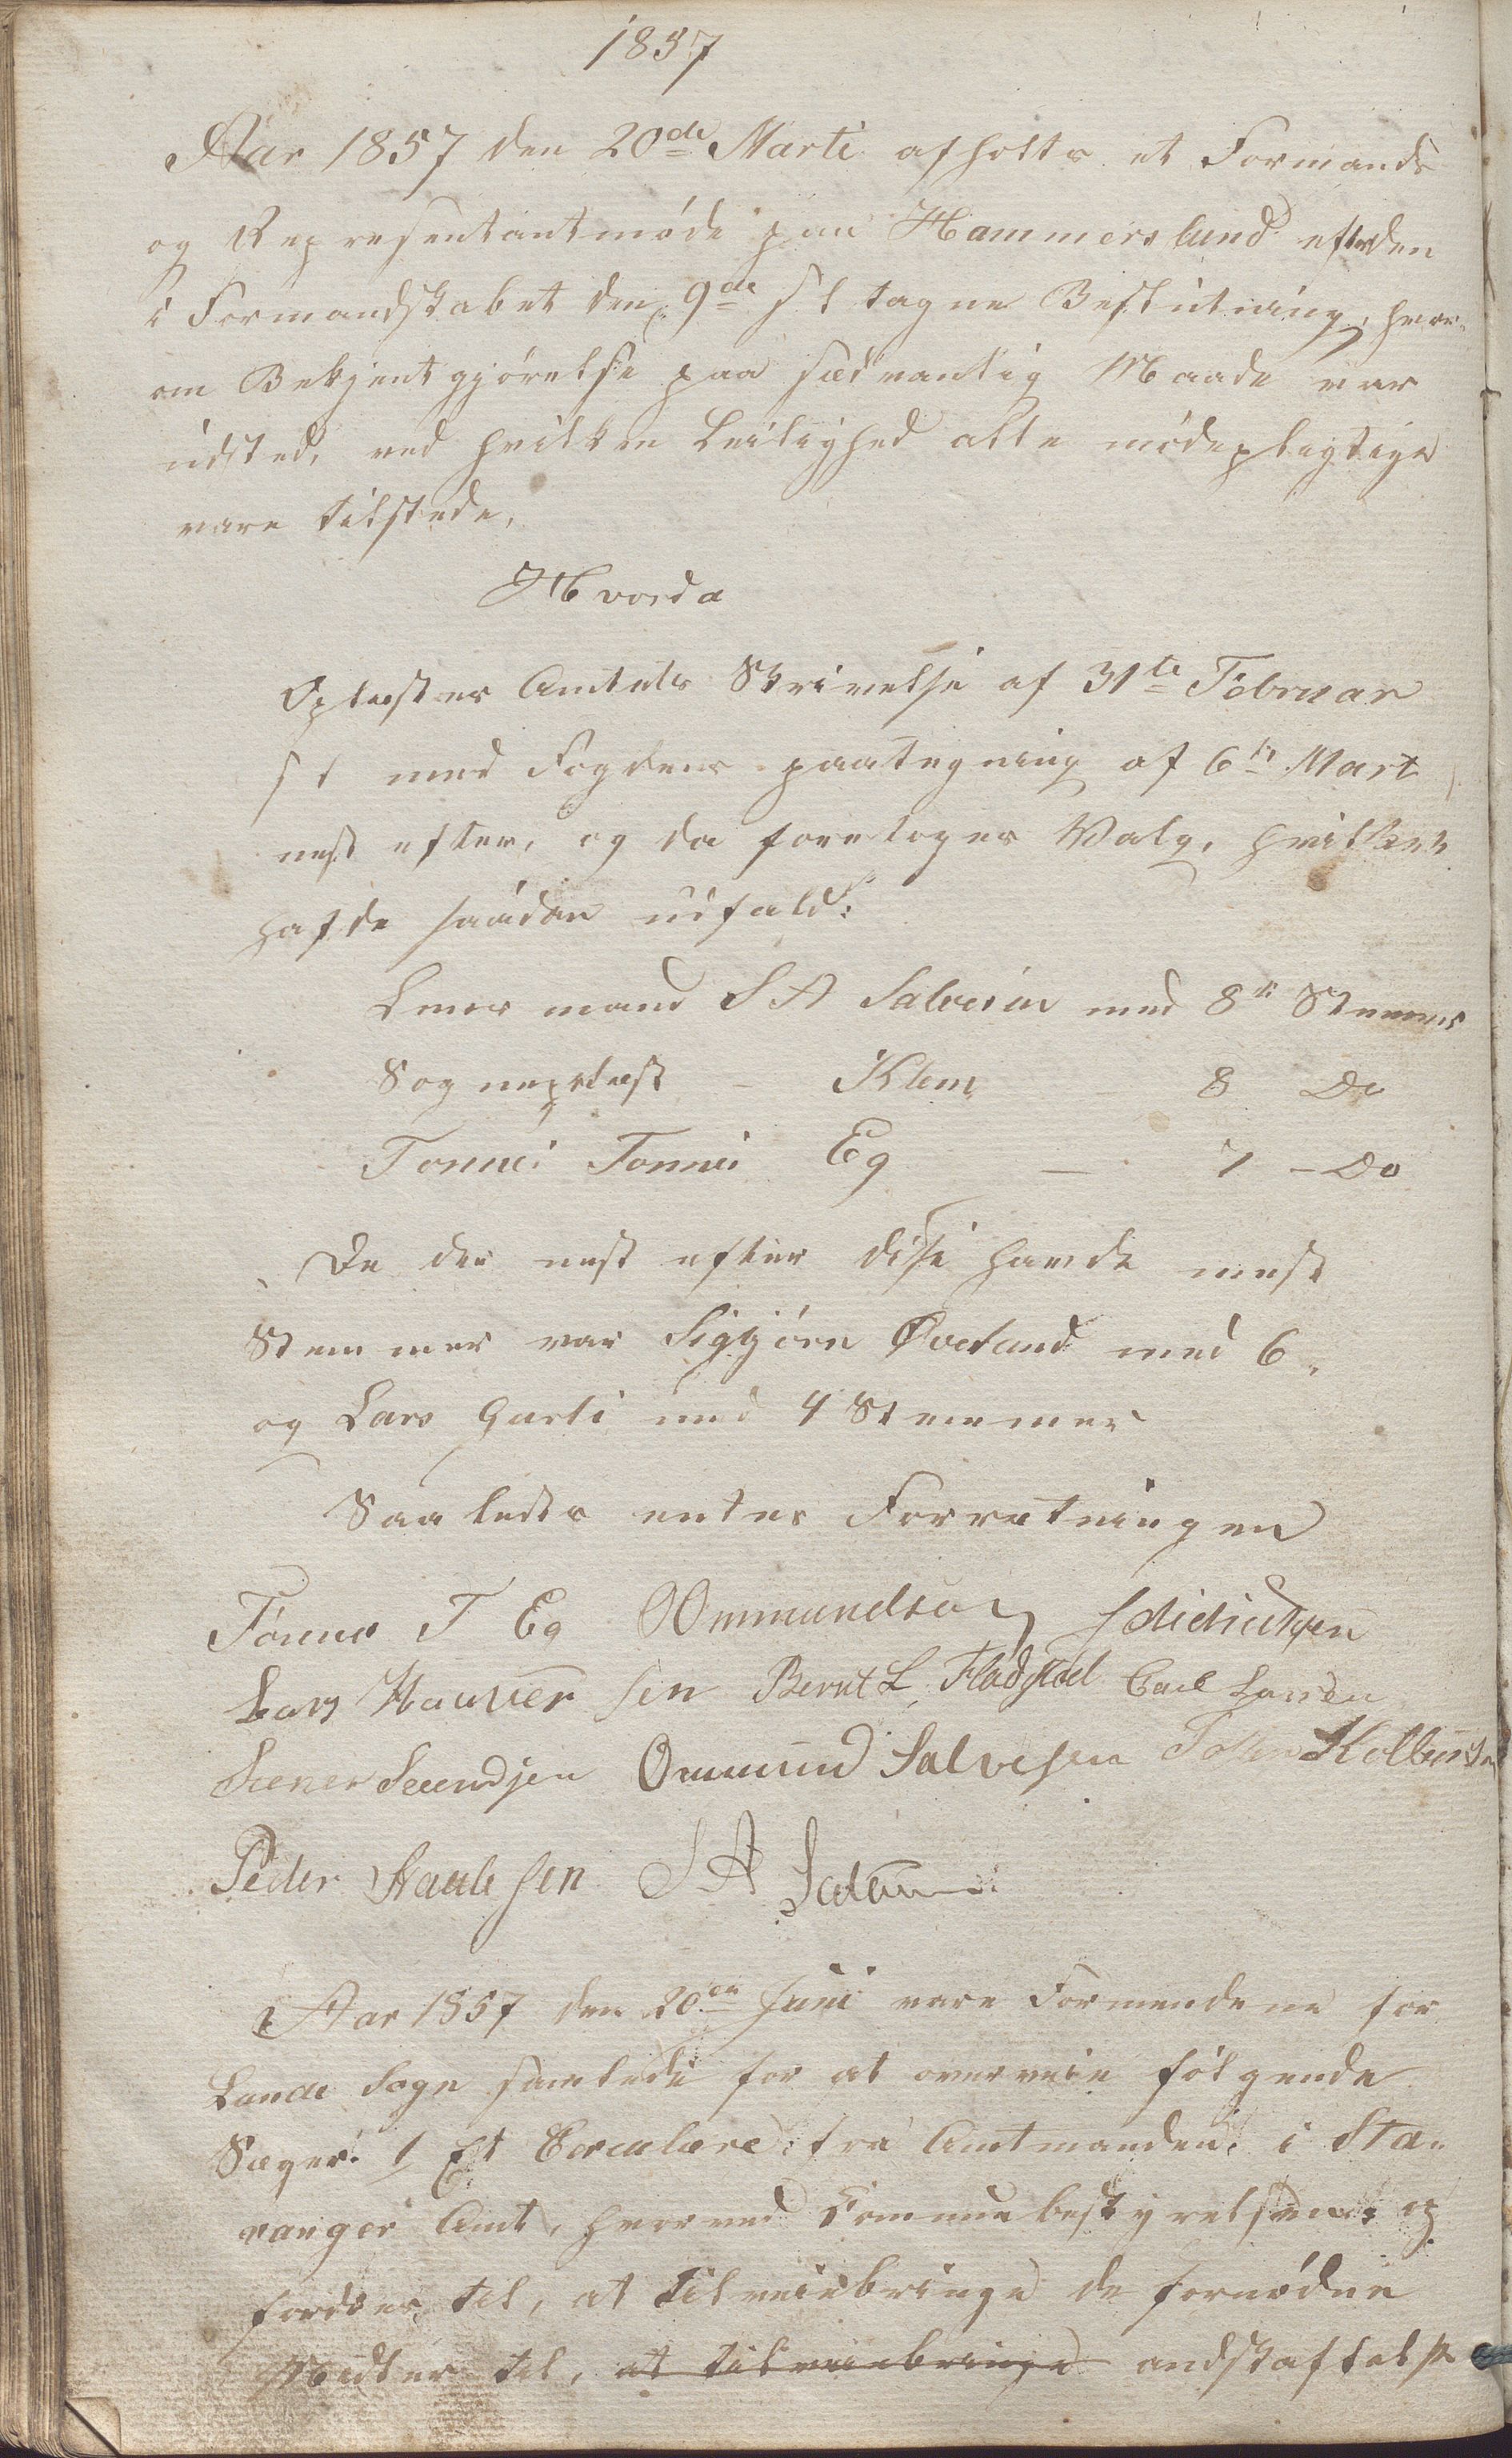 1857
Aar 1857 den 20de Marti afholtes et Formands
og Represententantmøde paa Hammerslund efter den
i Formandskabet den 9de s t tagne Beslutning, hvor-
om Bekjentgjørelse paa sædvanlig Maade var
udsted, ved hvilken Leilighed alle mødepligtige
vare tilstede,
Hvorda
Oplæstes Amtets Skrivelse af 31te Februar
s t med Fogdens paategning af 6te Mart
nest efter, og da foretoges Valg, hvilket
hafde saadan udfald:
Lensmand S A Salvesen med 8te Stemmer
Sogneprest - Klem 8 Do
Tønnes Tønnes Eg — 7 - Do
De der nest efter disse havde mest
Stemmer var Sigbjørn Øveland med 6,
og Lars Hauer med 4 Stemmer
Saaledes entes Forretningen
Tønnes T Eg O Ommundsen J Didriksen
Lars Hauversen Bernt L. Fladstøl Carl Larsen
Svend Svendsen Ommund Salvesen Tollev Kolbensen
Peder Paulsen S A Salvesen
Aar 1857 den 20en Juni vare Formendene for
Lunde Sogn samlede for at overveie følgende
Sager: 1 Et Circulære fra Amtmanden i Sta-
vanger Amt, hvorved Communebestyrelsen op
fordres til, at tilveiebringe de fornødne
Midler til, at tilveiebringe andskaffelse